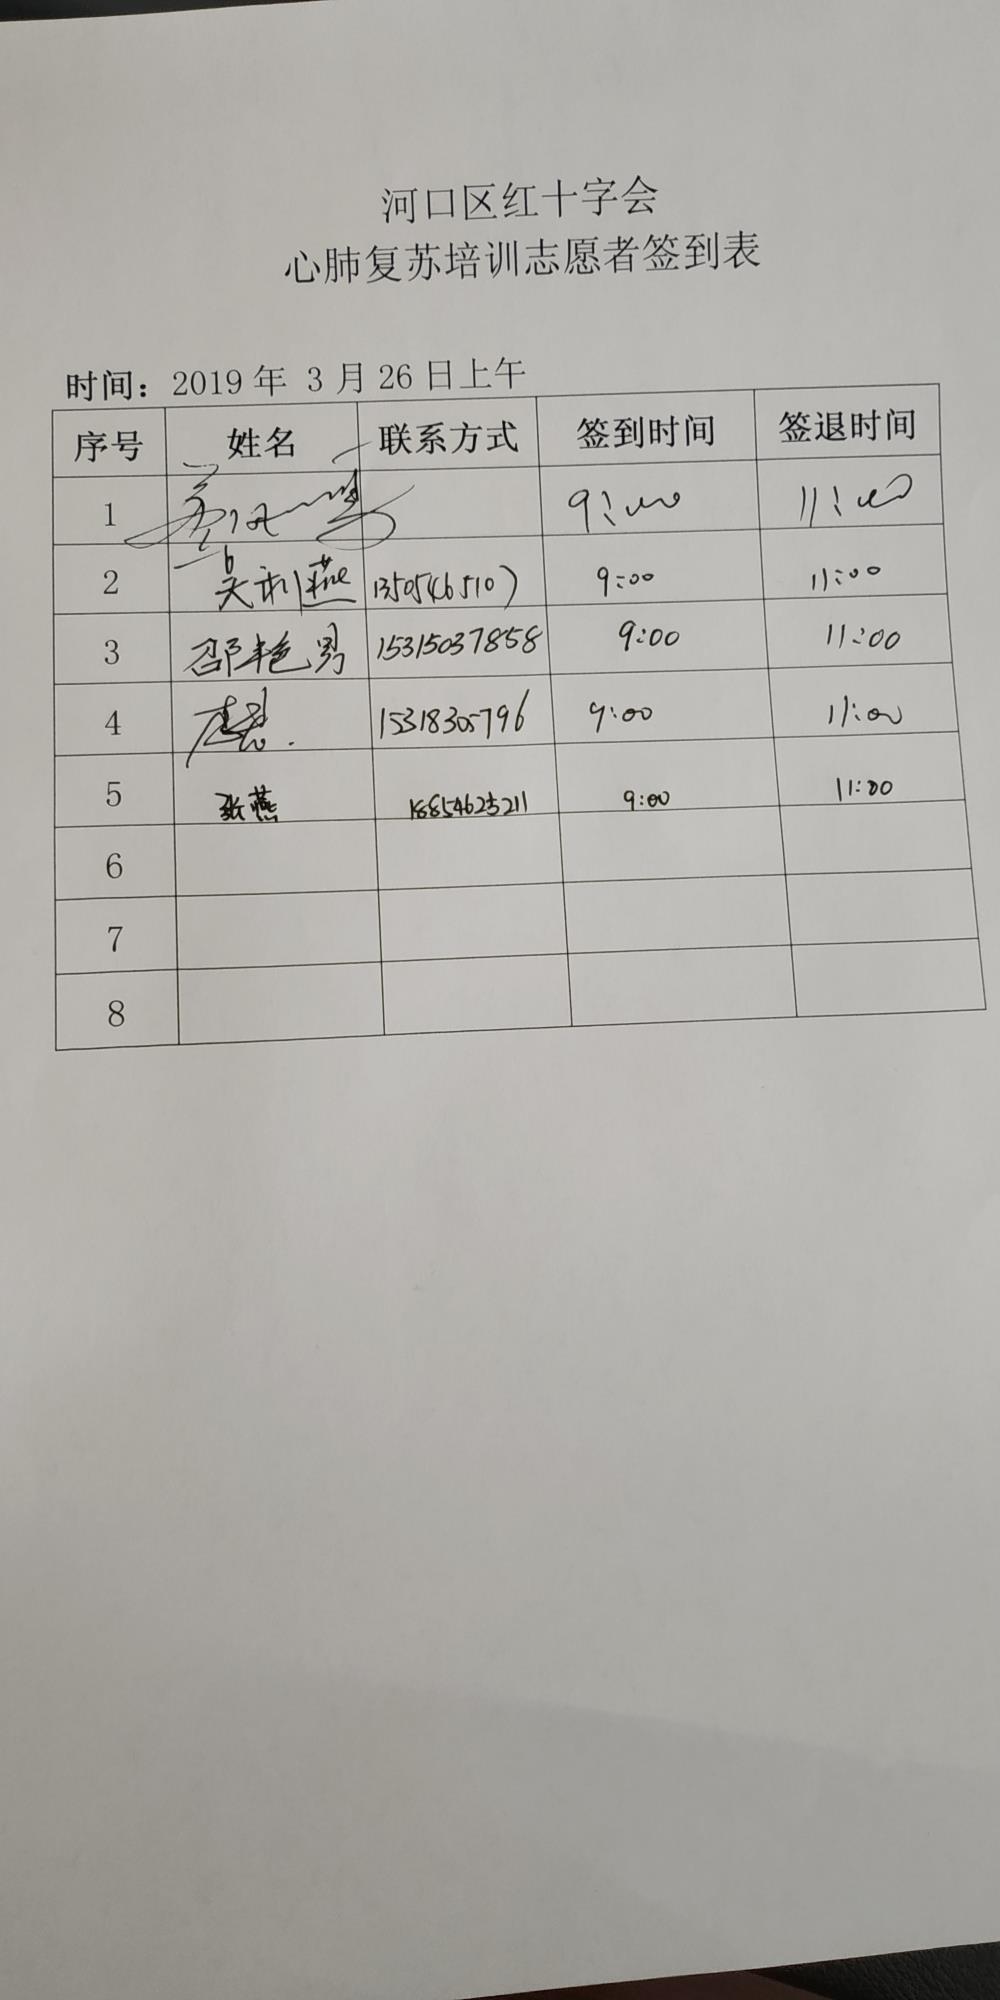 河口区红十字会
心肺复苏培训志愿者签到表
时间：2019年 3月26日上午
序号 姓名 联系方式 签到时间 签退时间
1 9:00 11:00
2 吴利燕 13505465107 9:00 11:00
3 邵艳男 15315037858 9:00 11:00
4 15318305796 9:00 11:00
5 张燕 18854623211 9:00 11:00
6
7
8